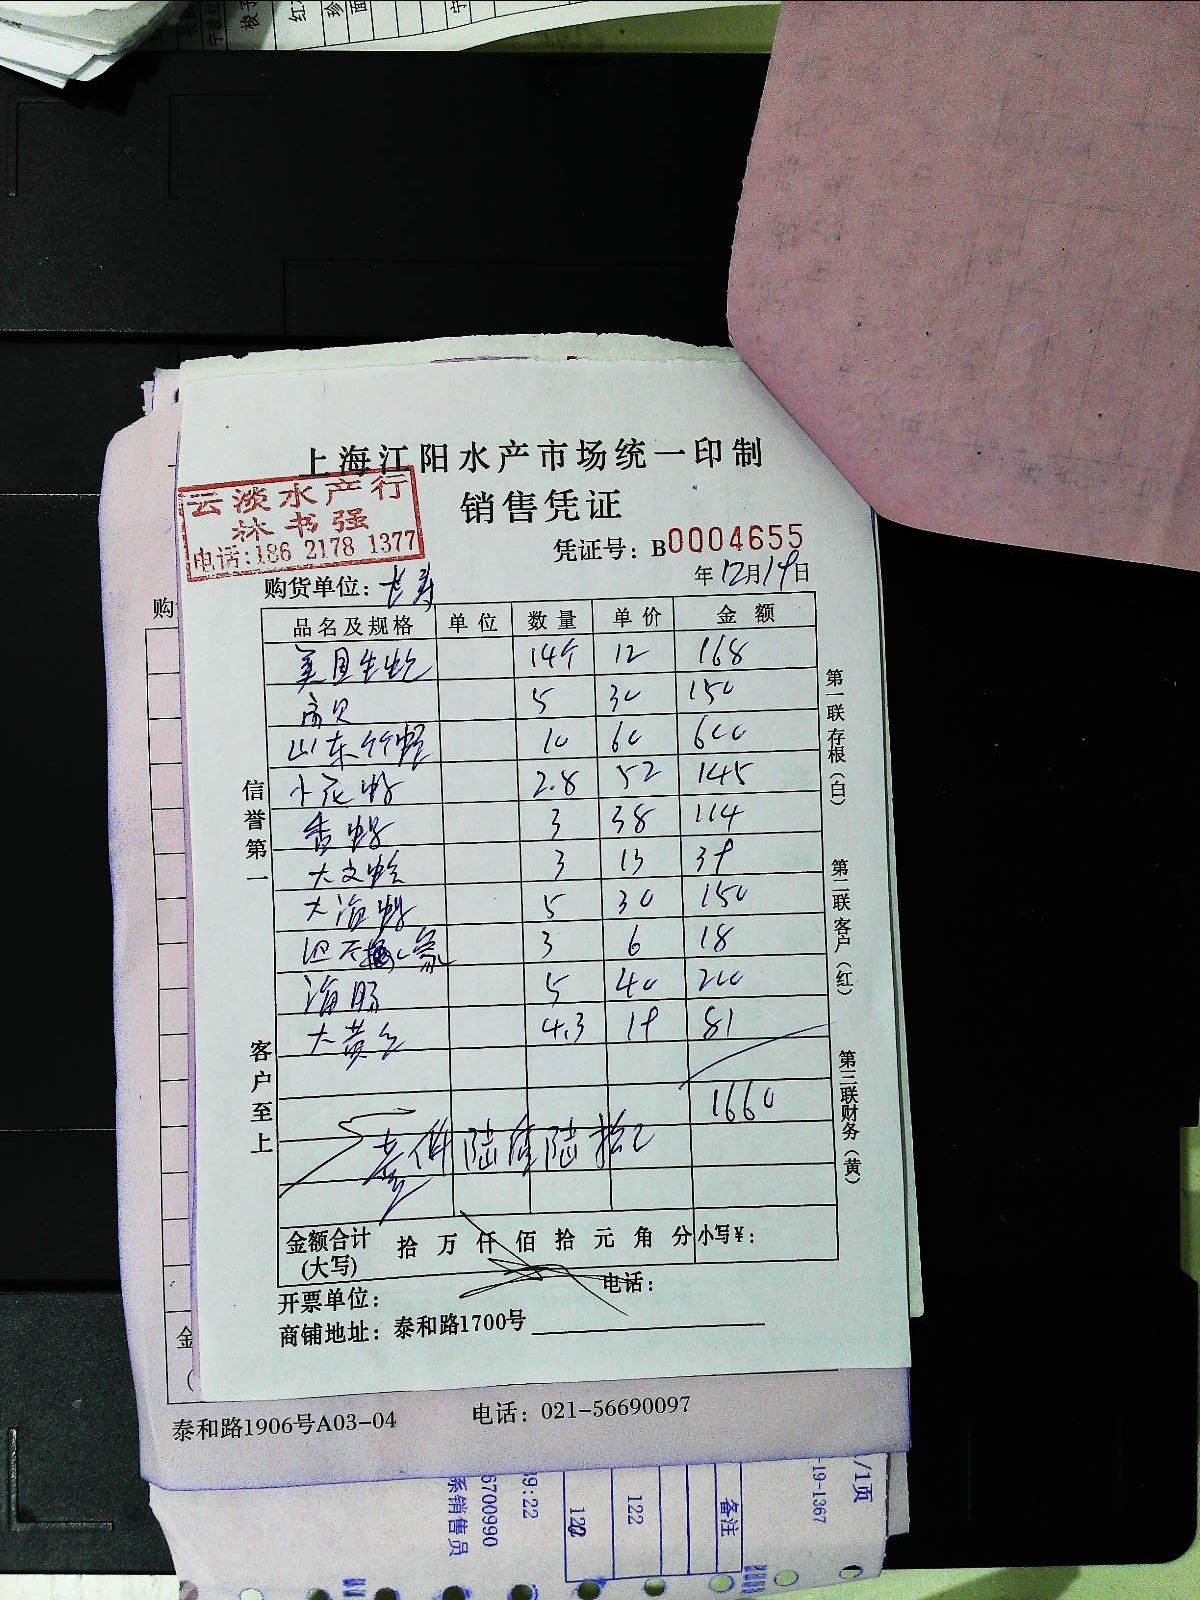 上海江阳水产市场统一印制
销售凭证
云淡水产行
林书强
电话:186 2178 1377
凭证号: B0004655
购货单位: 长寿
年12月19日
品名及规格 单位 数量 单价 金额
美国生蚝 14个 12 168
扇贝 5 30 150
山东竹蛏 10 60 600
小花螺 2.8 52 145
香螺 3 38 114
大文蛤 3 13 39
大海螺 5 30 150
3 6 18
海肠 5 40 200
大黄 4.3 19 81
1660
壹仟陆佰陆拾元
金额合计 拾 万 仟 佰 拾 元 角 分 小写¥:
(大写)
开票单位: 电话:
商铺地址: 泰和路1700号
信誉第一
客户至上
第一联存根(白)
第二联客户(红)
第三联财务(黄)
购
金
泰和路1906号A03-04 电话: 021-56690097
/1页
-19-1367
备注
122
39:22
6700990
系销售员